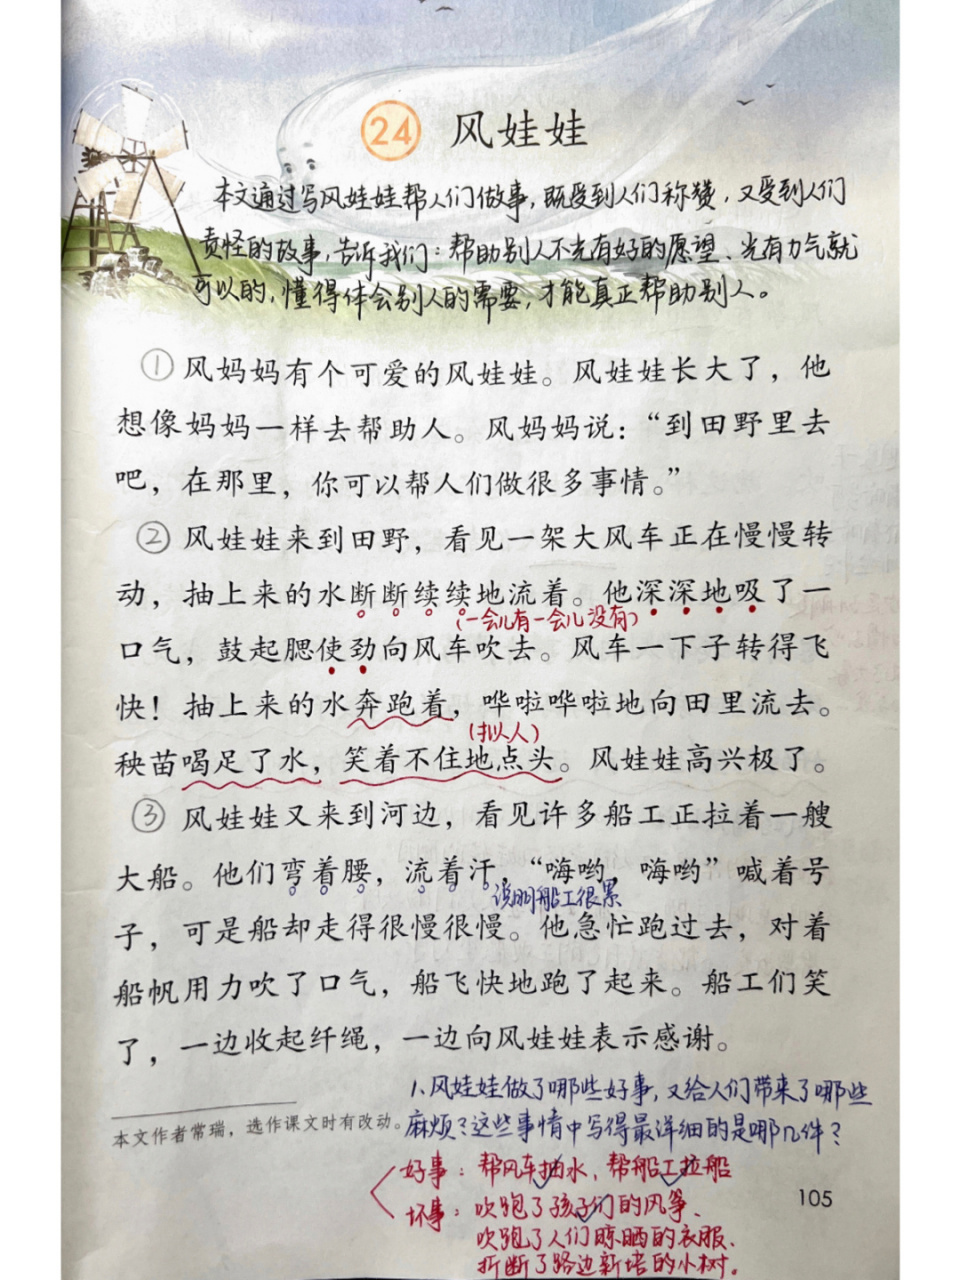 24 风娃娃
本文通过写风娃娃帮人们做事，既受到人们称赞，又受到人们
责怪的故事，告诉我们：帮助别人不光有好的愿望、光有力气就
可以的，懂得体会别人的需要，才能真正帮助别人。
① 风妈妈有个可爱的风娃娃。风娃娃长大了，他
想像妈妈一样去帮助人。风妈妈说：“到田野里去
吧，在那里，你可以帮人们做很多事情。”
② 风娃娃来到田野，看见一架大风车正在慢慢转
动，抽上来的水断断续续地流着。他深深地吸了一
（一会儿有一会儿没有）
口气，鼓起腮使劲向风车吹去。风车一下子转得飞
快！抽上来的水奔跑着，哗啦哗啦地向田里流去。
（拟人）
秧苗喝足了水，笑着不住地点头。风娃娃高兴极了。
③ 风娃娃又来到河边，看见许多船工正拉着一艘
大船。他们弯着腰，流着汗，“嗨哟，嗨哟”喊着号
说明船工很累
子，可是船却走得很慢很慢。他急忙跑过去，对着
船帆用力吹了口气，船飞快地跑了起来。船工们笑
了，一边收起纤绳，一边向风娃娃表示感谢。
1.风娃娃做了哪些好事，又给人们带来了哪些
本文作者常瑞，选作课文时有改动。
麻烦？这些事情中写得最详细的是哪几件？
好事：帮风车抽水，帮船工拉船
坏事：吹跑了孩子们的风筝、
吹跑了人们晾晒的衣服、
折断了路边新培的小树。
105